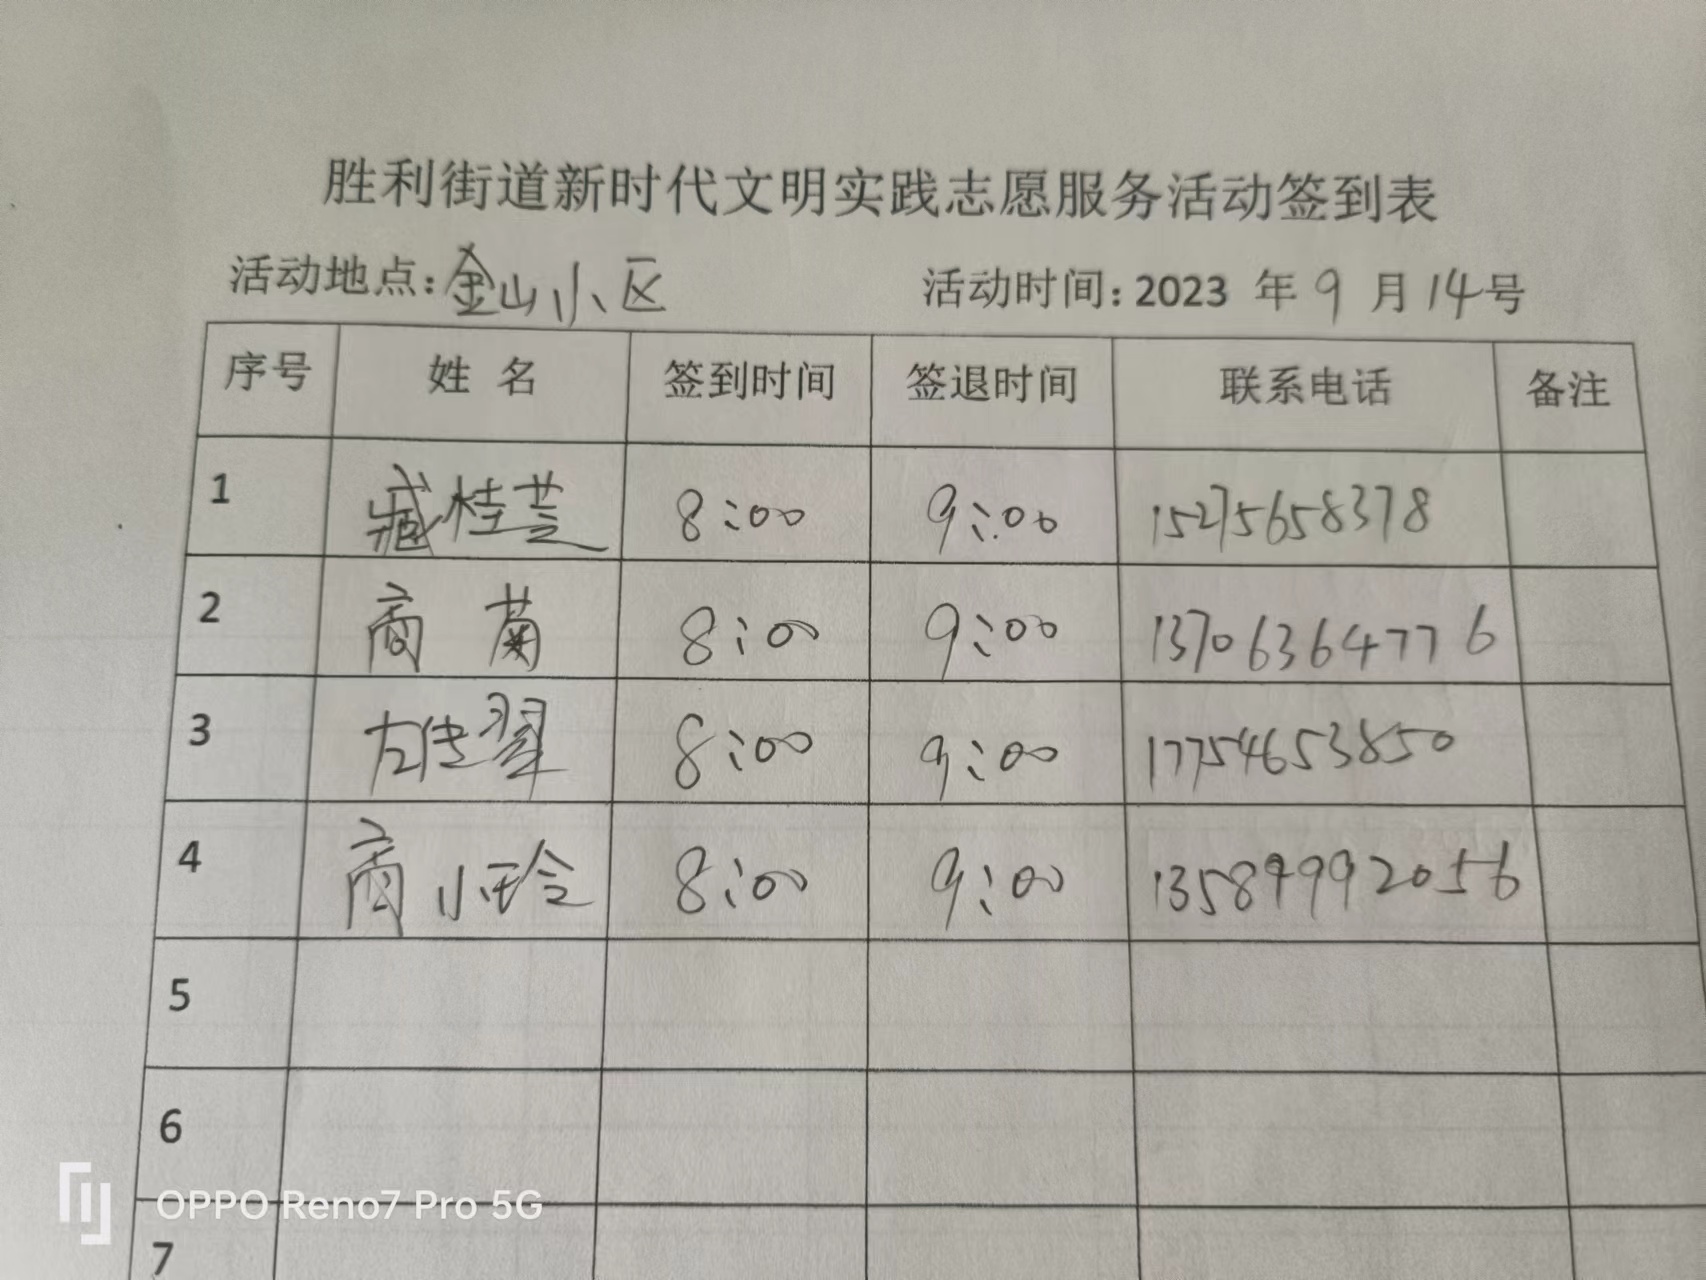 胜利街道新时代文明实践志愿服务活动签到表
活动地点：金山小区 活动时间：2023 年 9 月 14号
序号 姓 名 签到时间 签退时间 联系电话 备注
1 臧桂芸 8:00 9:00 15275658378
2 商 菊 8:00 9:00 13706364776
3 左传翠 8:00 9:00 17754653850
4 商小玲 8:00 9:00 13589992056
5
6
7
OPPO Reno7 Pro 5G